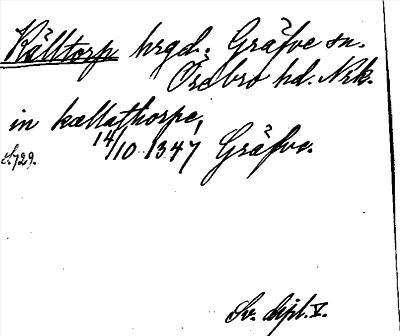 Källtorp hrgd. Gräfve sn.
Örebro hd. Nrk.
in kællathorpe,
14/10 1347 Gräfve.
s. 729.
Sv. dipl. V.